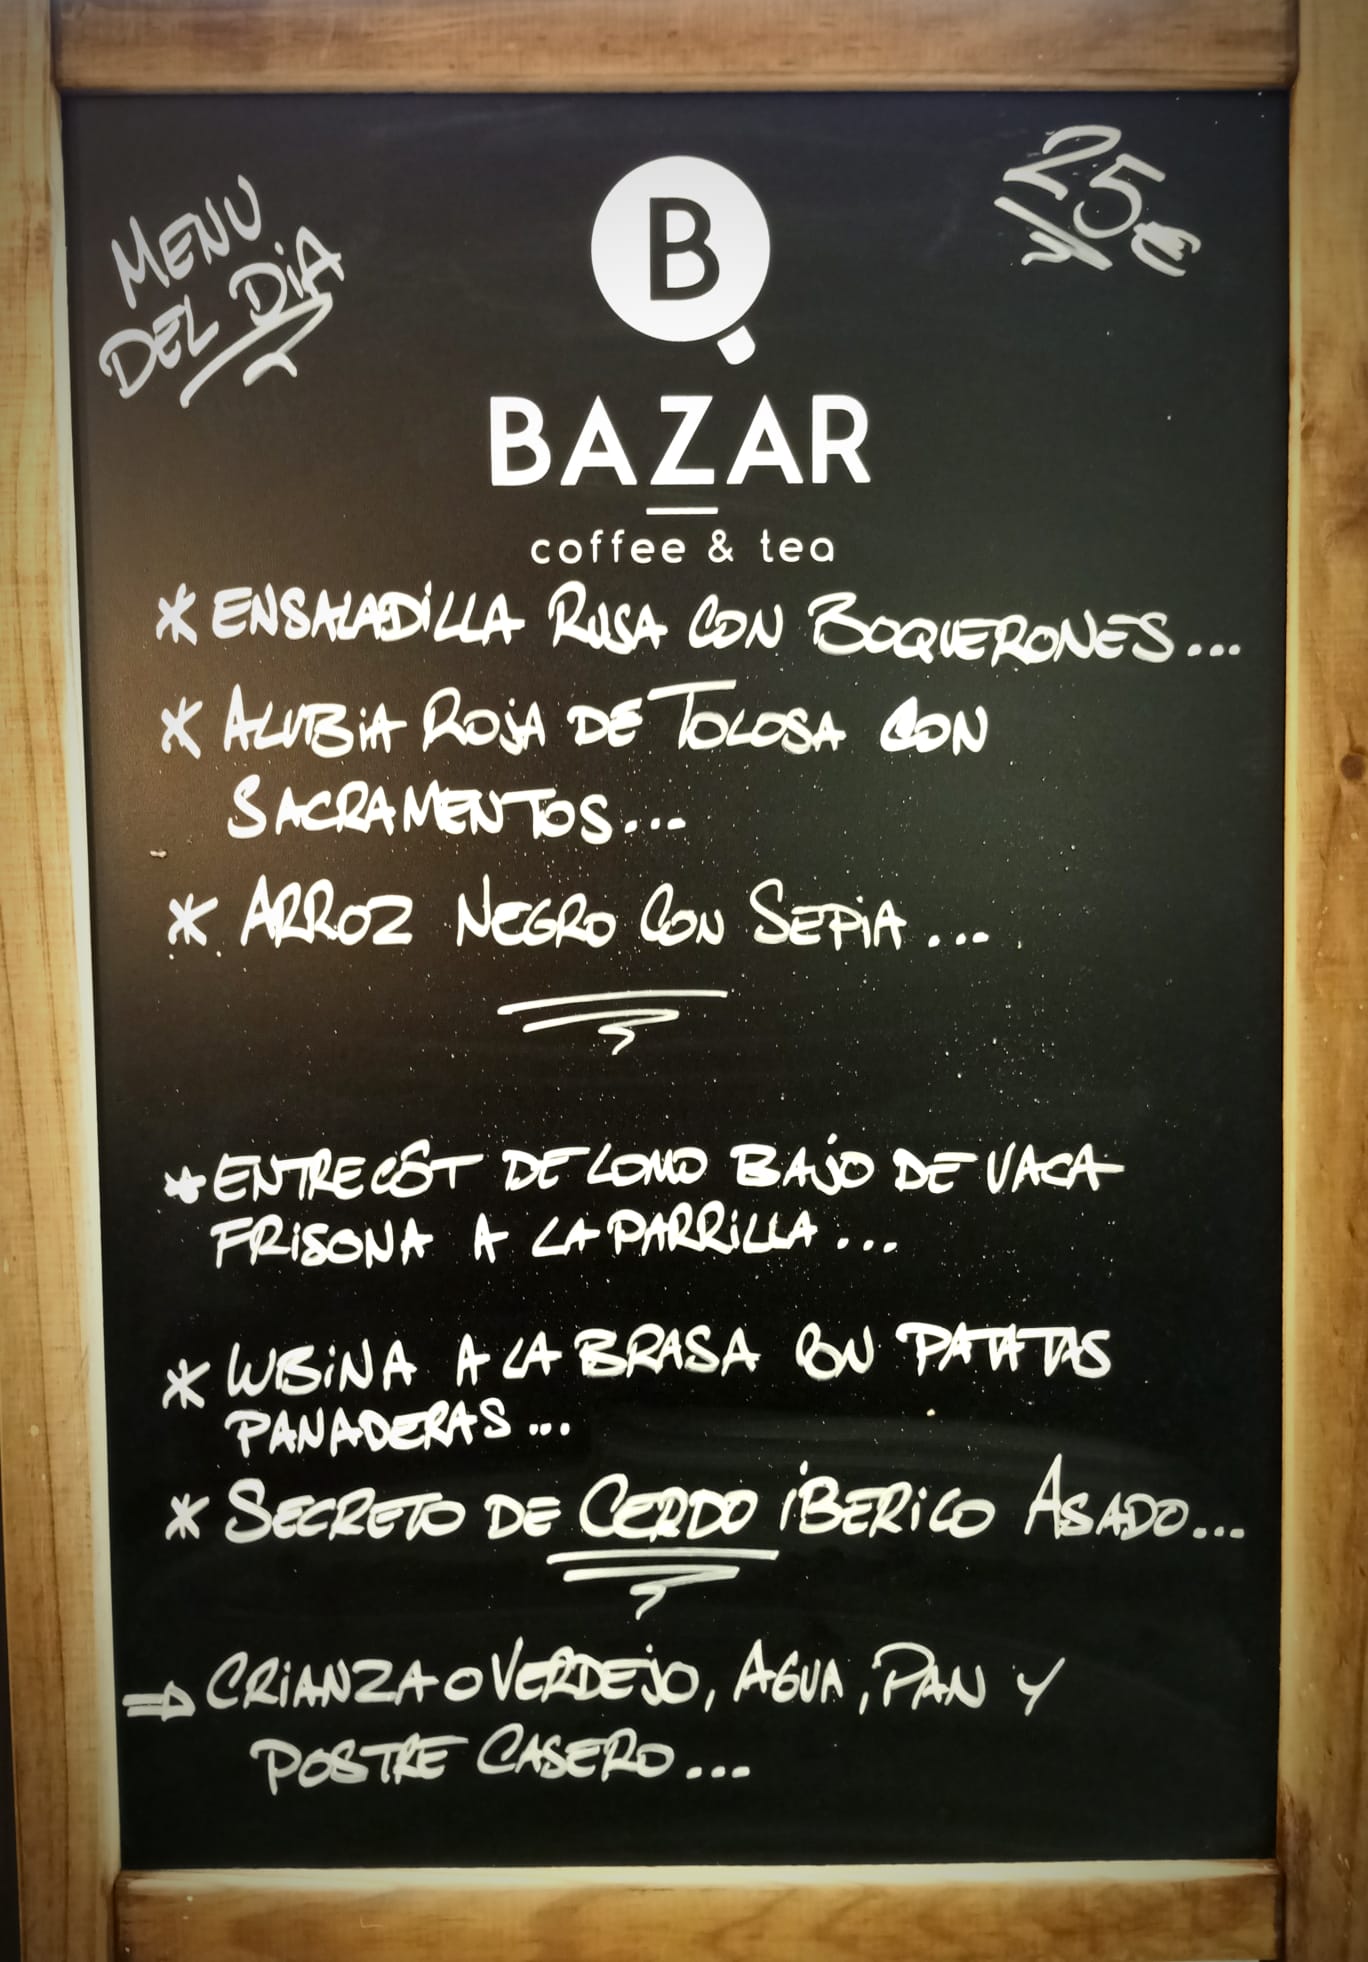 MENU
DEL DiA
25€
B
BAZAR
coffee & tea
* ENSALADiLLA RUSA CON BOQUERONES...
* ALUBiA ROJA DE TOLOSA CON
SACRAMENTOS...
* ARROZ NEGRO CON SEPiA...
* ENTRECÔT DE LOMO BAJO DE VACA
FRiSONA A LA PARRiLLA...
* LUBiNA A LA BRASA CON PATATAS
PANADERAS...
* SECRETO DE CERDO iBERiCO ASADO...
⇒ CRiANZA O VERDEJO, AGUA, PAN Y
POSTRE CASERO...